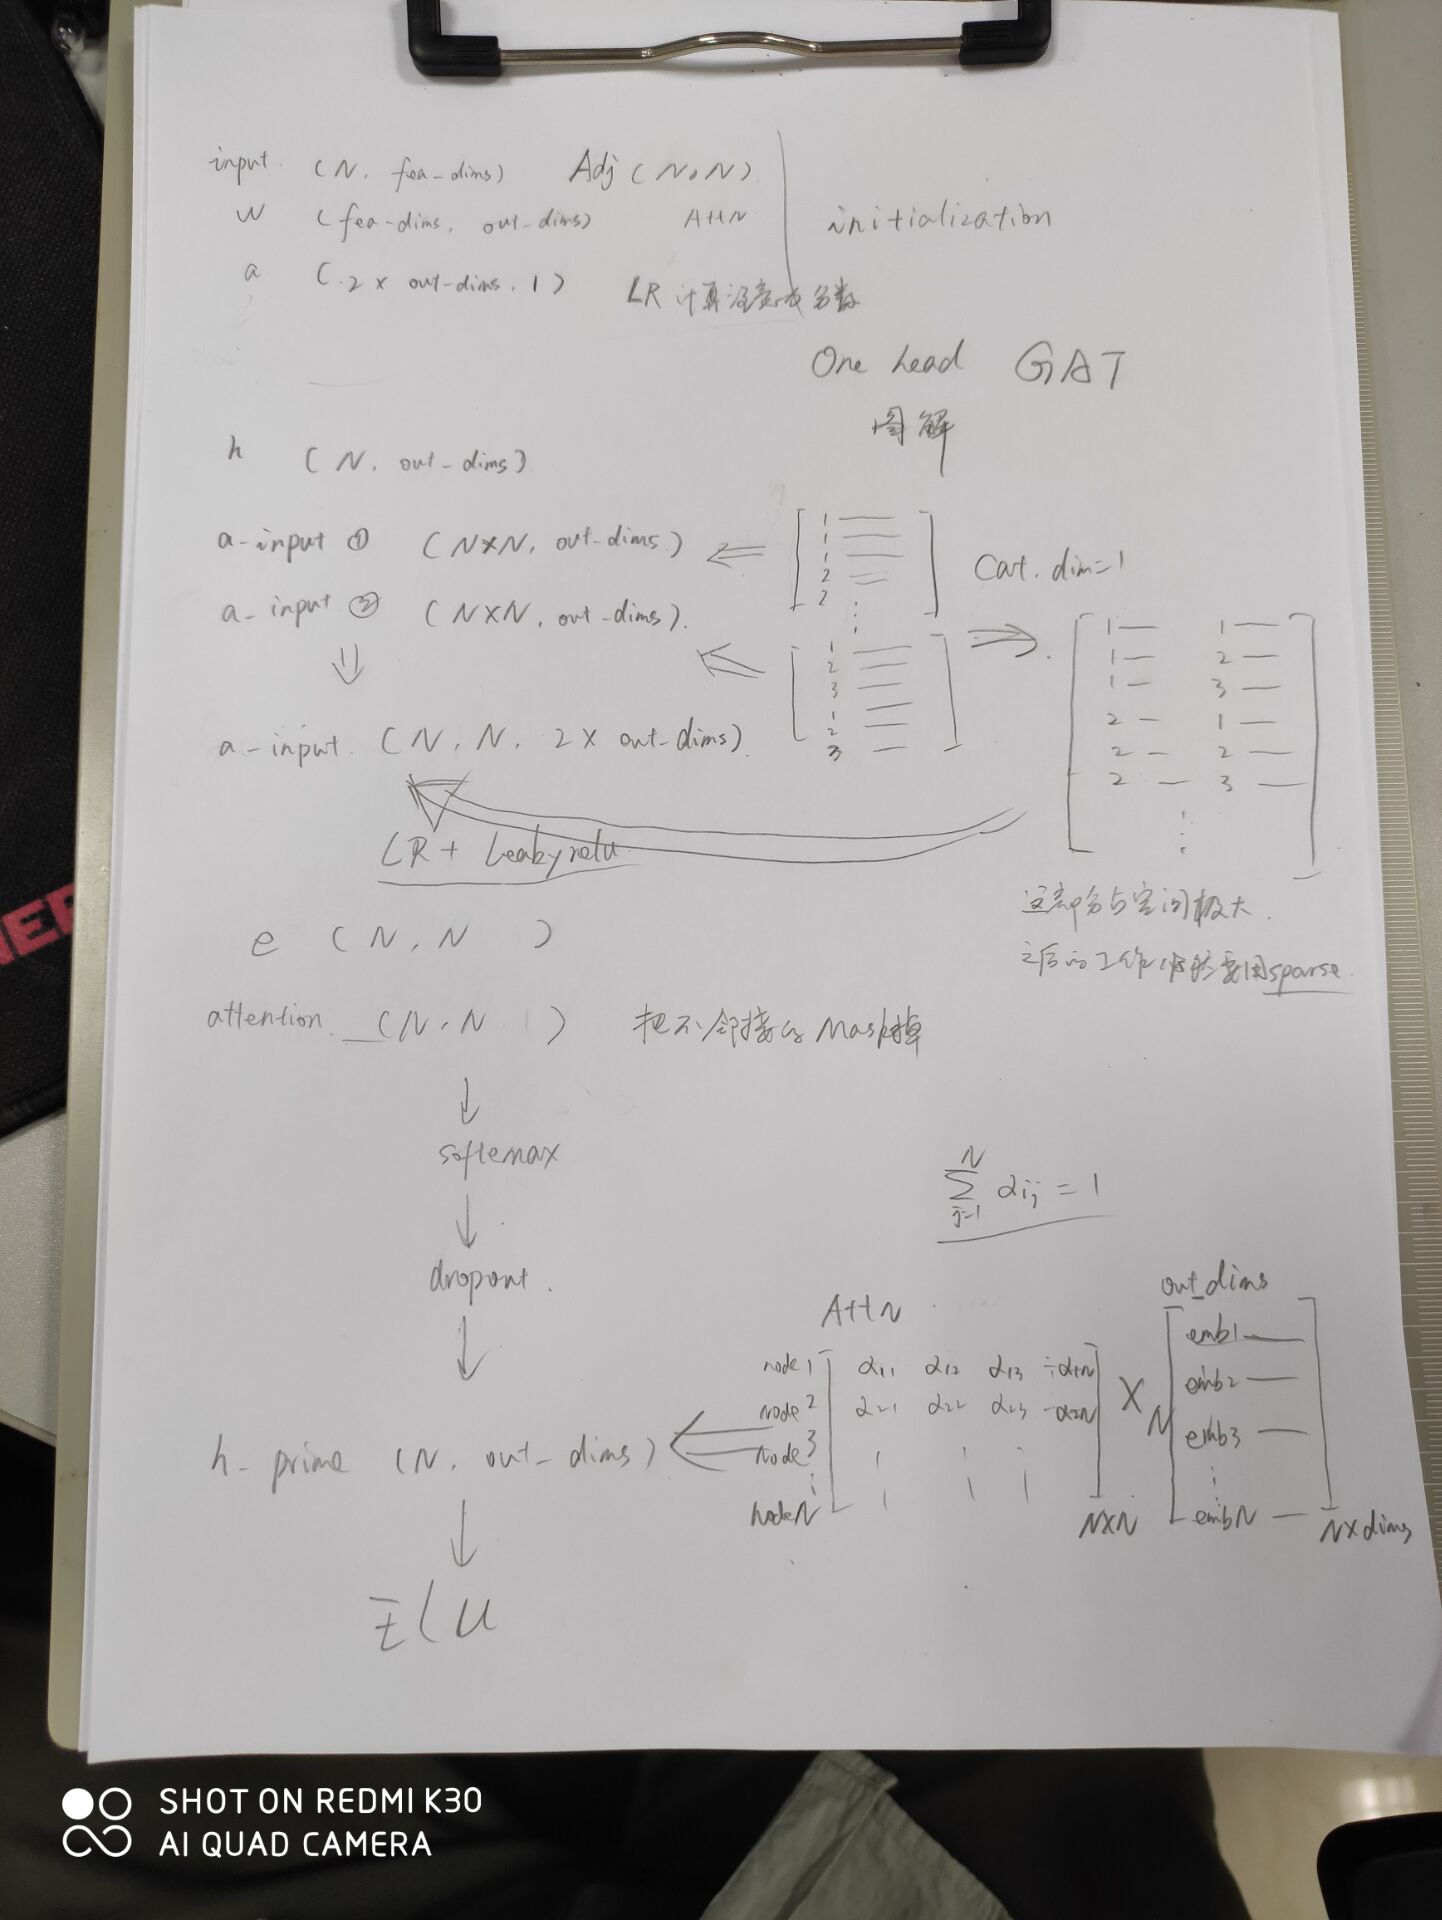 input. (N, fea-dims) Adj (N, N).
W (fea-dims, out-dims) AttN
initialization
a (2 x out-dims, 1) LR 计算注意力分数
One head GAT
图解
h (N, out-dims)
a-input ① (N×N, out-dims)
1
1
1
2
2
Cat. dim=1
a-input ② (N×N, out-dims).
1
2
3
1
2
3
1 1
1 2
1 3
2 1
2 2
2 3
a-input. (N, N, 2X out-dims)
LR + Leakyrelu
这部分占空间极大.
之后的工作 要用sparse.
e (N, N )
attention (N, N ) 把不邻接的Mask掉
softemax
N
∑ αij = 1
j=1
dropout.
AttN
out_dims
node1 α11 α12 α13 … α1N
node2 α21 α22 α23 … α2N
node3
nodeN
N×N
X
N
emb1
emb2
emb3
embN
NXdims
h-prime (N, out-dims)
ELU
NEE
SHOT ON REDMI K30
AI QUAD CAMERA